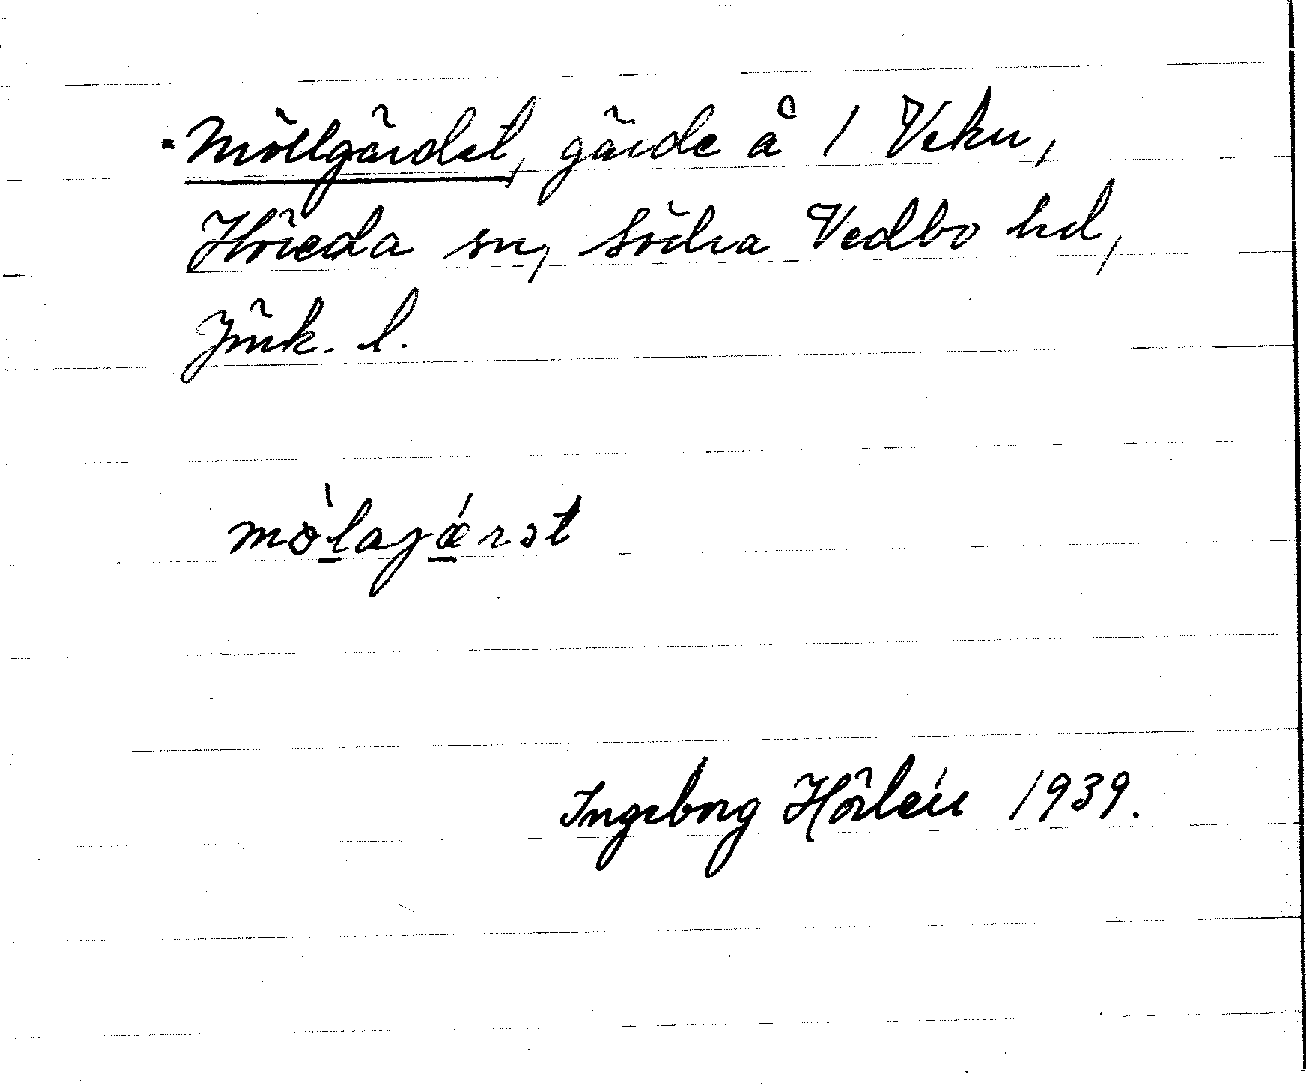 Möllgärdet, gärde å 1 Veku,
Höreda sn, Södra Vedbo hd,
Jönk. l.
mølajærət
Ingeborg Hörlén 1939.